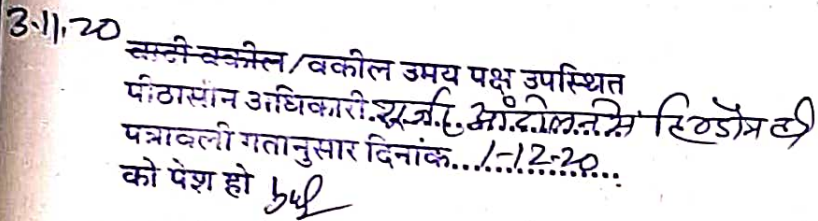 3.11.20
वादी वकील/वकील उभय पक्ष उपस्थित
पीठासीन अधिकारी गुर्जर आंदोलन में हिण्डौन
पत्रावली गतानुसार दिनांक...1-12-20...
को पेश हो